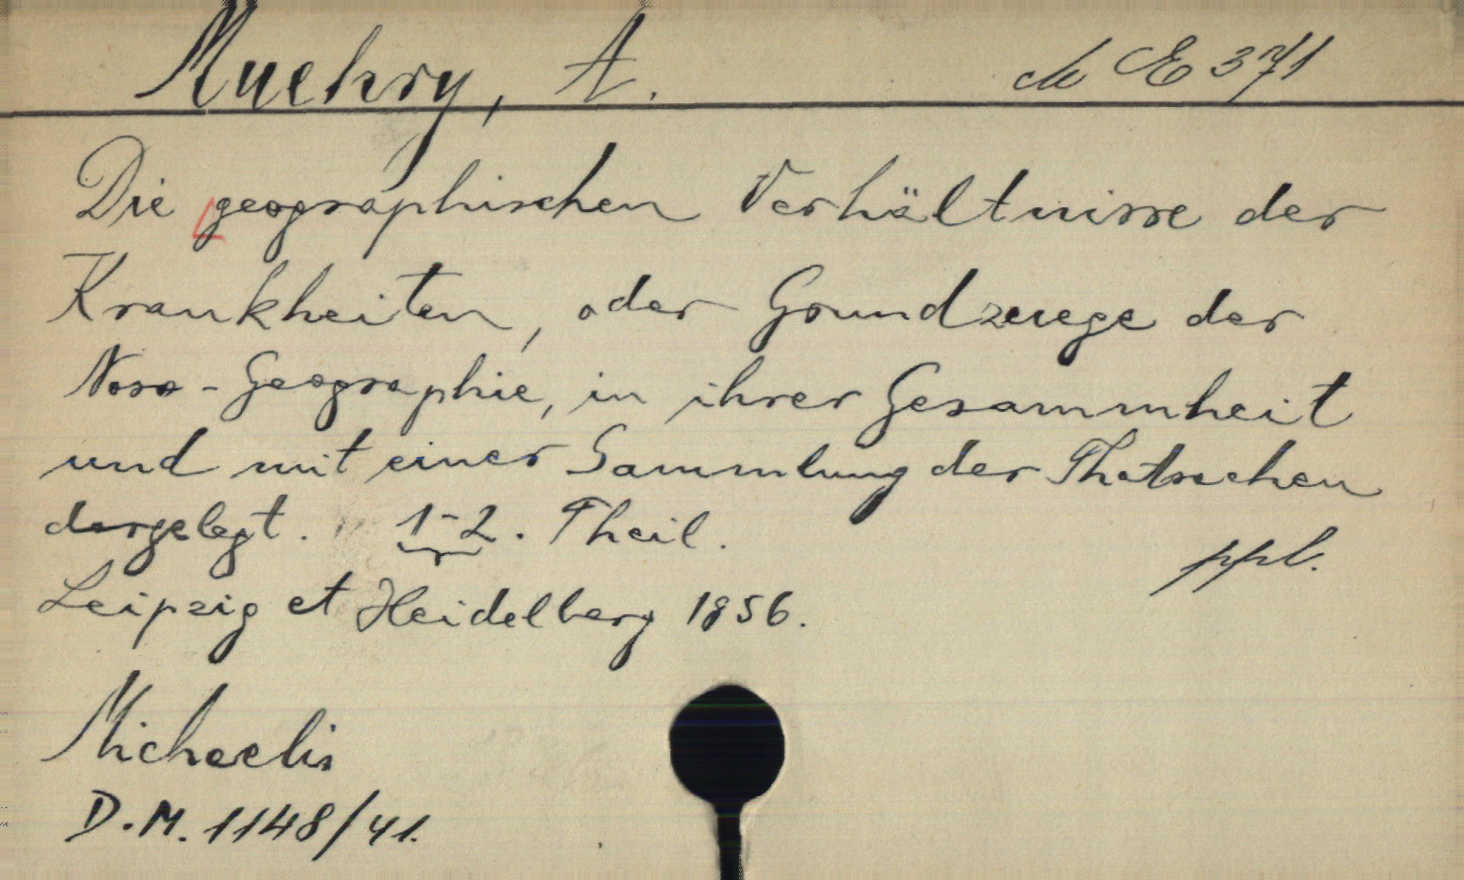 Muehry, A. de E 371
Die geographischen Verhältnisse der
Krankheiten, oder Grundzuege der
Noso-Geographie, in ihrer Gesammheit
und mit einer Sammlung der Thatsachen
dargelegt. 1-2. Theil.
ppl.
Leipzig et Heidelberg 1856.
Michaelis
D.M. 1148/41.